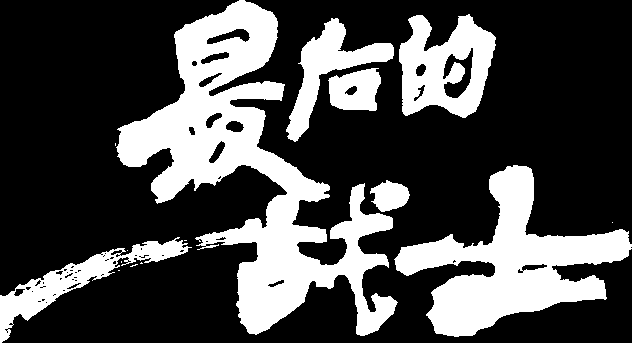 最后的
战士